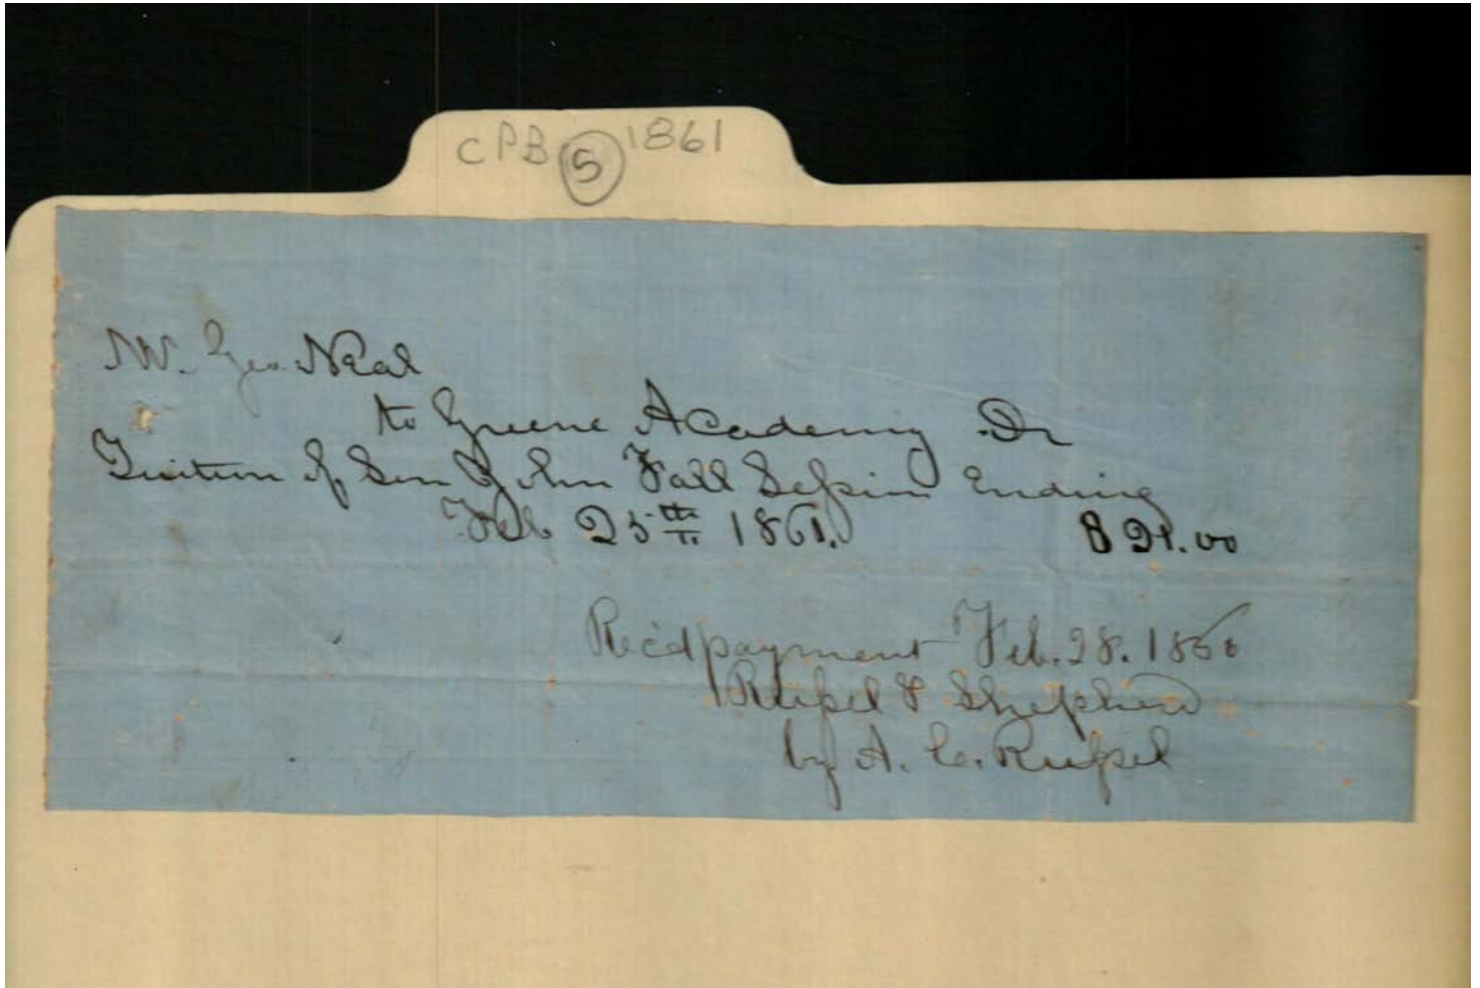 CPB (5) 1861
Mr. Geo. Neal
to Greene Academy Dr
Tuition of Son John Fall Session Ending
Feb 25th 1861. $21.00
Rec'd payment Feb. 28. 186
Russel & Shepherd
by A. C. Russel